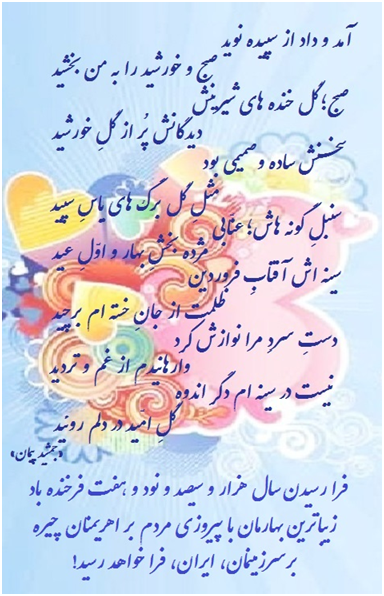 آمد و داد از سپیده نوید
صبح و خورشید را به من بخشید
صبح؛ گل خنده های شیرینش
دیدگانش پُر از گلِ خورشید
سخنش ساده و صمیمی بود
مثل گل برگ های یاسِ سپید
سنبلِ گونه هاش؛ عنابی
مژده بخشِ بهار و اوّلِ عید
سینه اش آفتابِ فروردین
ظلمت از جانِ خسته ام برچید
دستِ سردِ مرا نوازش کرد
وارهانیدم از غم و تردید
نیست در سینه ام دگر اندوه
گلِ امّید در دلم رویید
«جمشید پیمان»
فرا رسیدن سال هزار و سیصد و نود و هفت فرخنده باد
زیباترین بهارمان با پیروزی مردم بر اهریمنان چیره
بر سرزمینمان، ایران، فرا خواهد رسید!